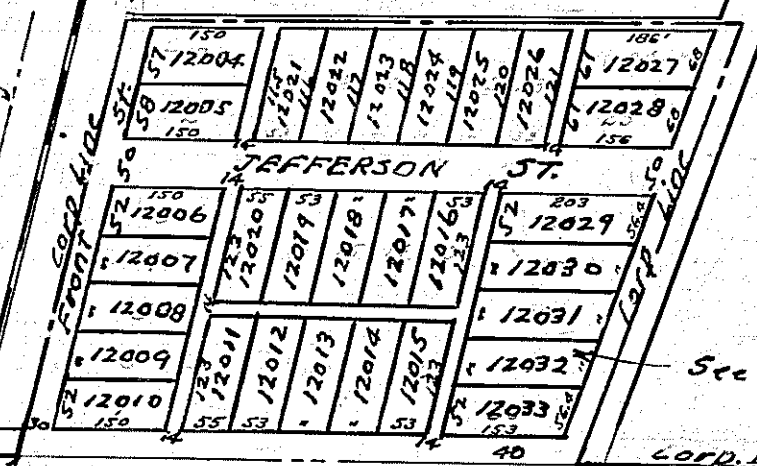 150
57 12004
58 12005
150
115 12021 116
12022 117
12023 118
12024 119
12025 120
12026 121
186'
67 12027 68
67 12028 60
156
14
14
JEFFERSON ST.
50
50
Front St.
Corp Line
Corp Line
14
14
150
52 12006
" 12007
" 12008
" 12009
52 12010
150
30
55 53 " " 53
123 12020
12019
12018
12017
12016 123
14
123 12011
12012
12013
12014
12015 123
55 53 " " 53
14
14
203
52 12029 56.9
" 12030 "
" 12031 "
" 12032
52 12033 56.9
153
40
See
Corp.